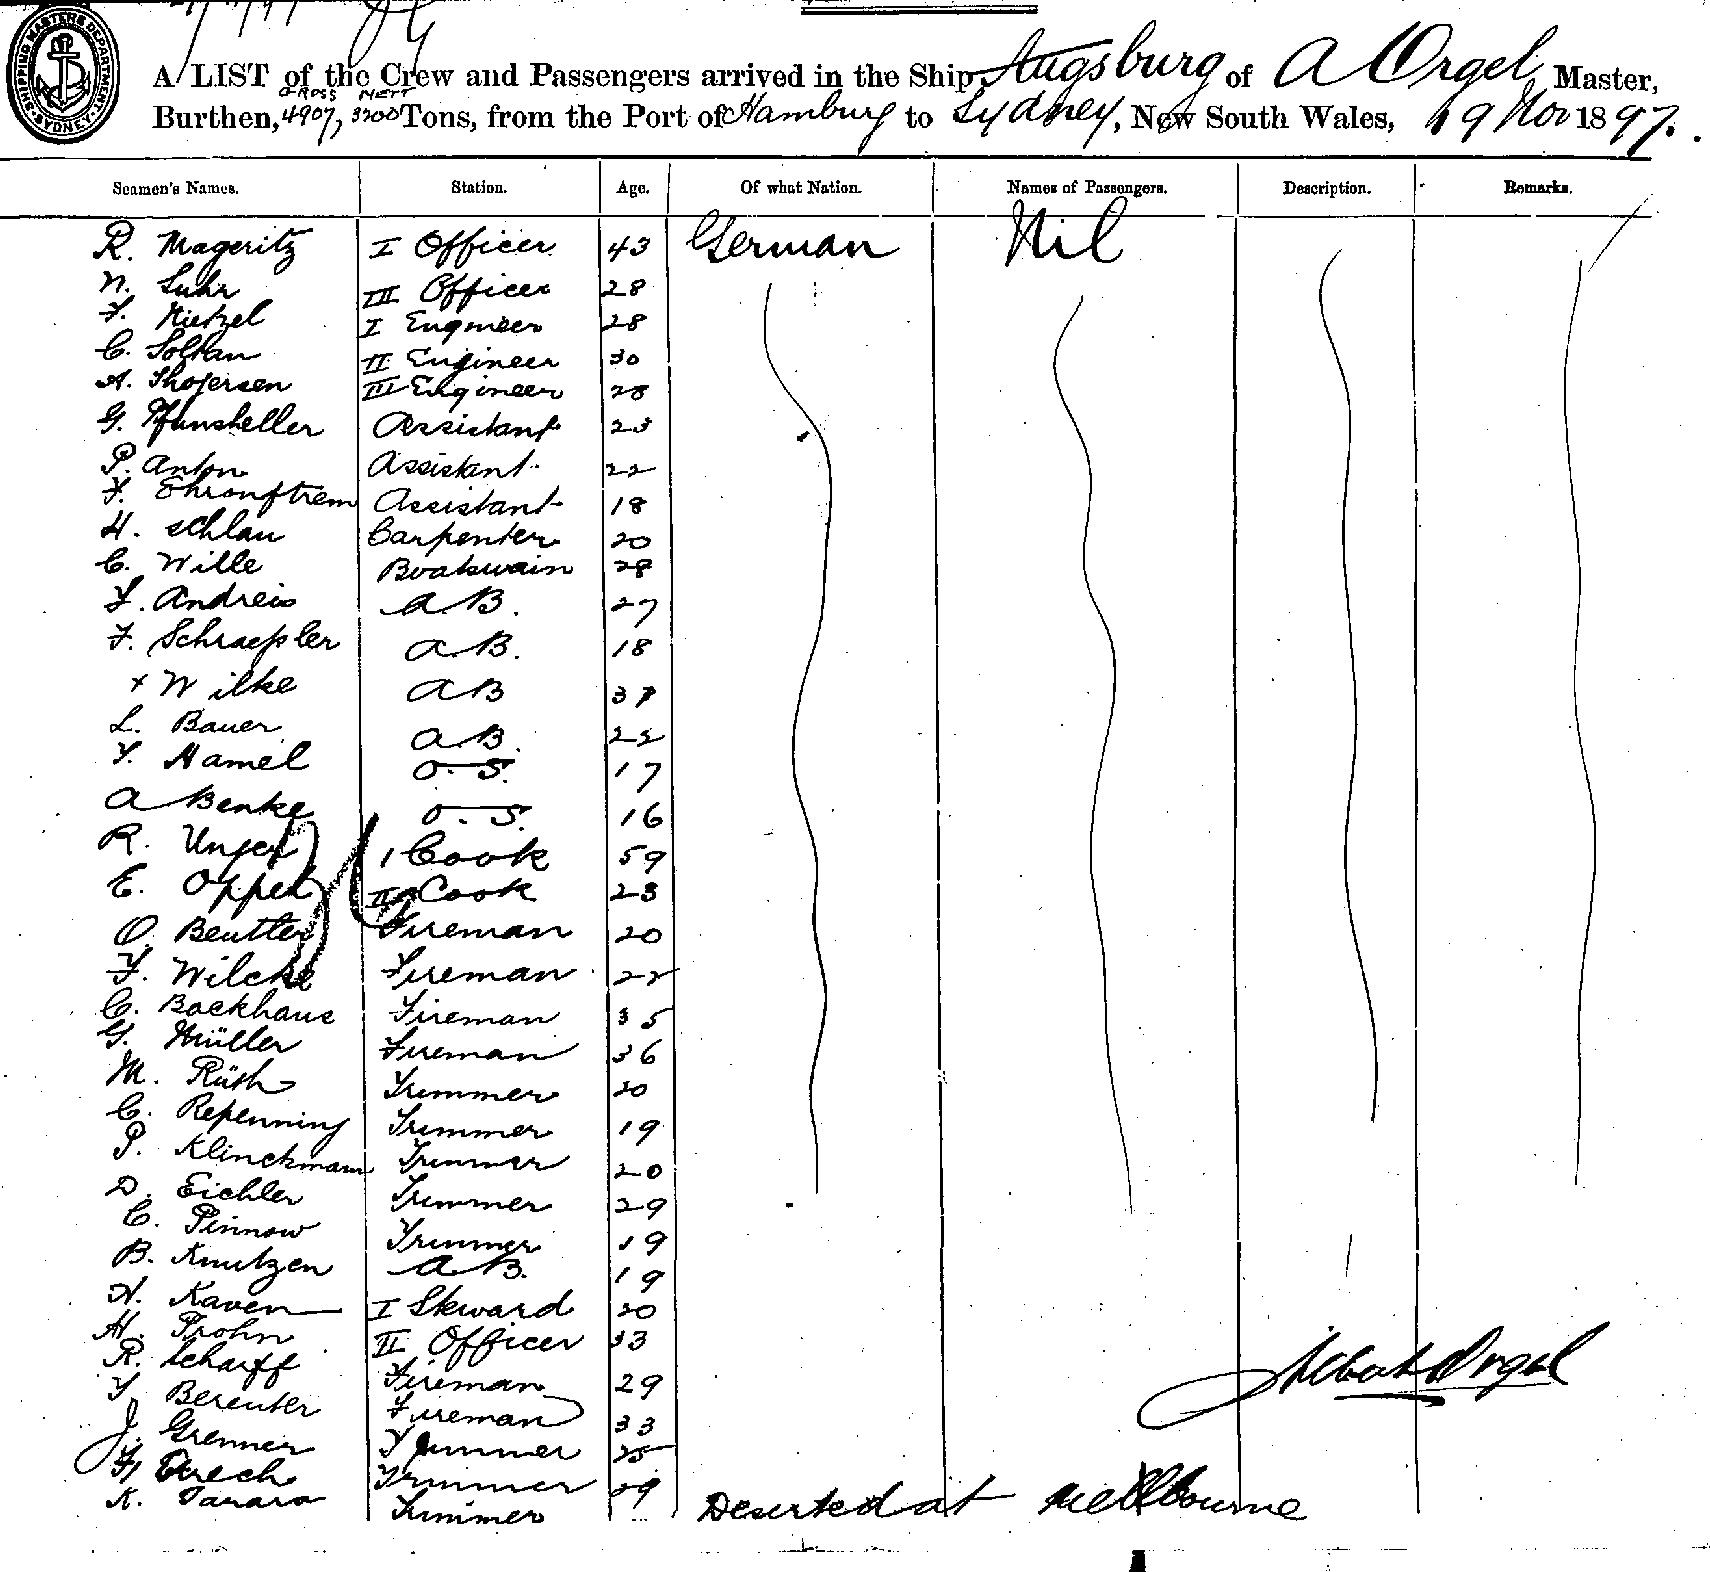 SHIPPING MASTERS DEPARTMENT SYDNEY
A LIST of the Crew and Passengers arrived in the Ship Augsburg of A Orgel, Master,
GROSS NETT
Burthen, 4907, 3200 Tons, from the Port of Hamburg to Sydney, New South Wales, 19 Nov 1897.
Seamen's Names. Station. Age. Of what Nation. Names of Passengers. Description. Remarks.
R. Mageritz I Officer 43 German Nil
N. Luhr III Officer 28
F. Nietzel I Engineer 28
C. Soltan II Engineer 30
A. Thojersen III Engineer 28
G. Pfunsheller Assistant 23
P. Anton Assistant 22
F. Assistant 18
H. Schlau Carpenter 20
C. Wille Boatswain 28
F. Andreis A B. 27
F. Schraepler A B. 18
+ Wilke A B 37
L. Bauer A B. 22
F. Hamel O. S. 17
A Benke O. S. 16
R. Unger 1 Cook 59
E. Oppel II Cook 23
O. Beutler Fireman 20
F. Wilcke Fireman 22
C. Backhaus Fireman 35
G. Müller Fireman 36
M. Rüsh Trimmer 20
C. Repenning Trimmer 19
P. Klinckmann Trimmer 20
D. Eichler Trimmer 29
C. Pinnow Trimmer 19
B. Knutzen A B. 19
H. Kaven I Steward 20
H. Prohn II Officer 33
R. Scharff Fireman 29
F Bereuter Fireman 33
J. Grenner Trimmer 25
F. Trimmer 29
K. Tanara Trimmer Deserted at Melbourne
Albert Orgel